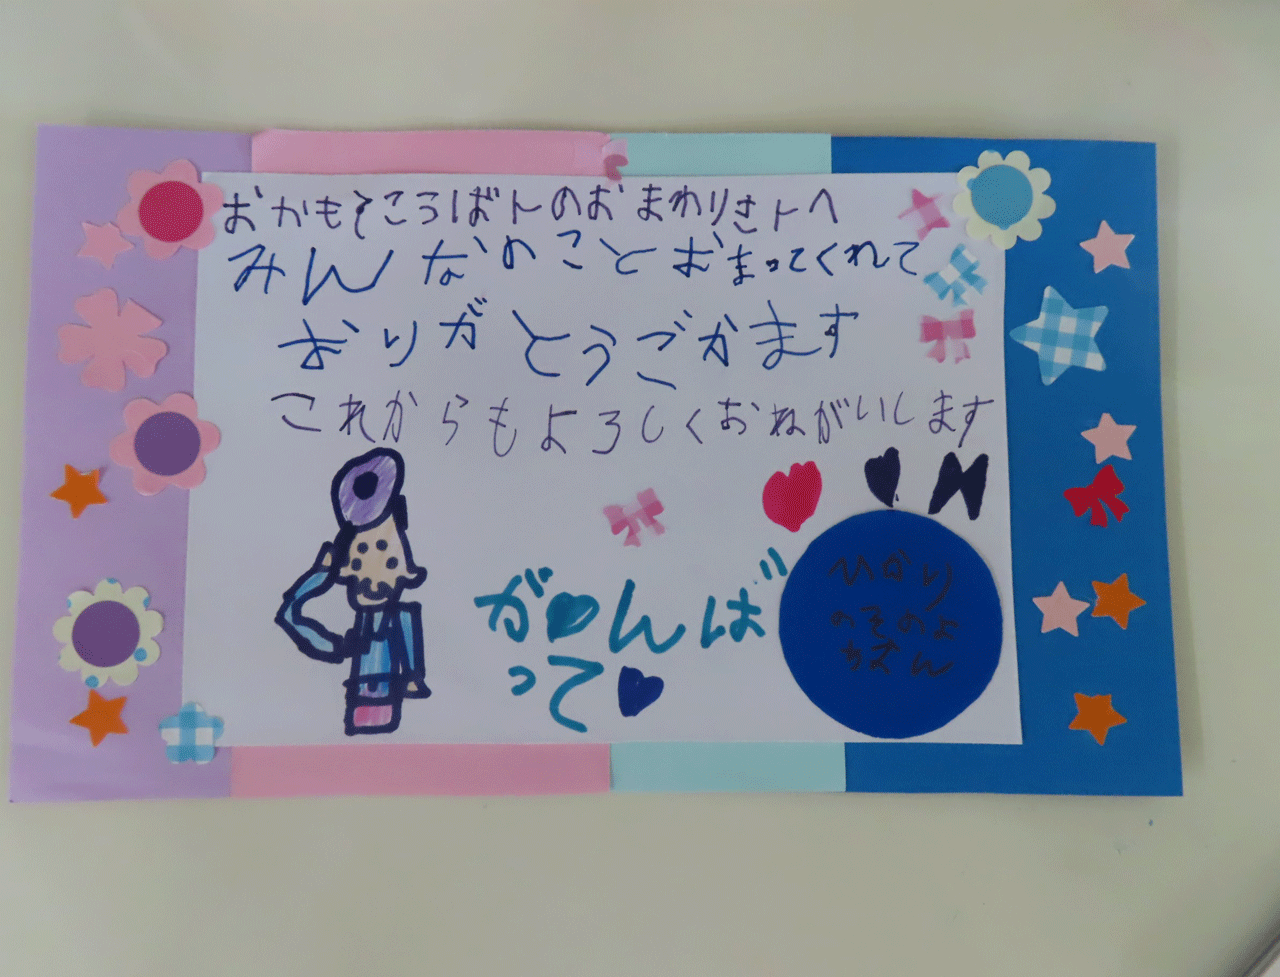 おかもところばんのおまわりさんへ
みんなのことおまってくれて
おりがとうごかます
これからもよろしくおねがいします
がんば
って
ひかり
のそのよ
ちえん